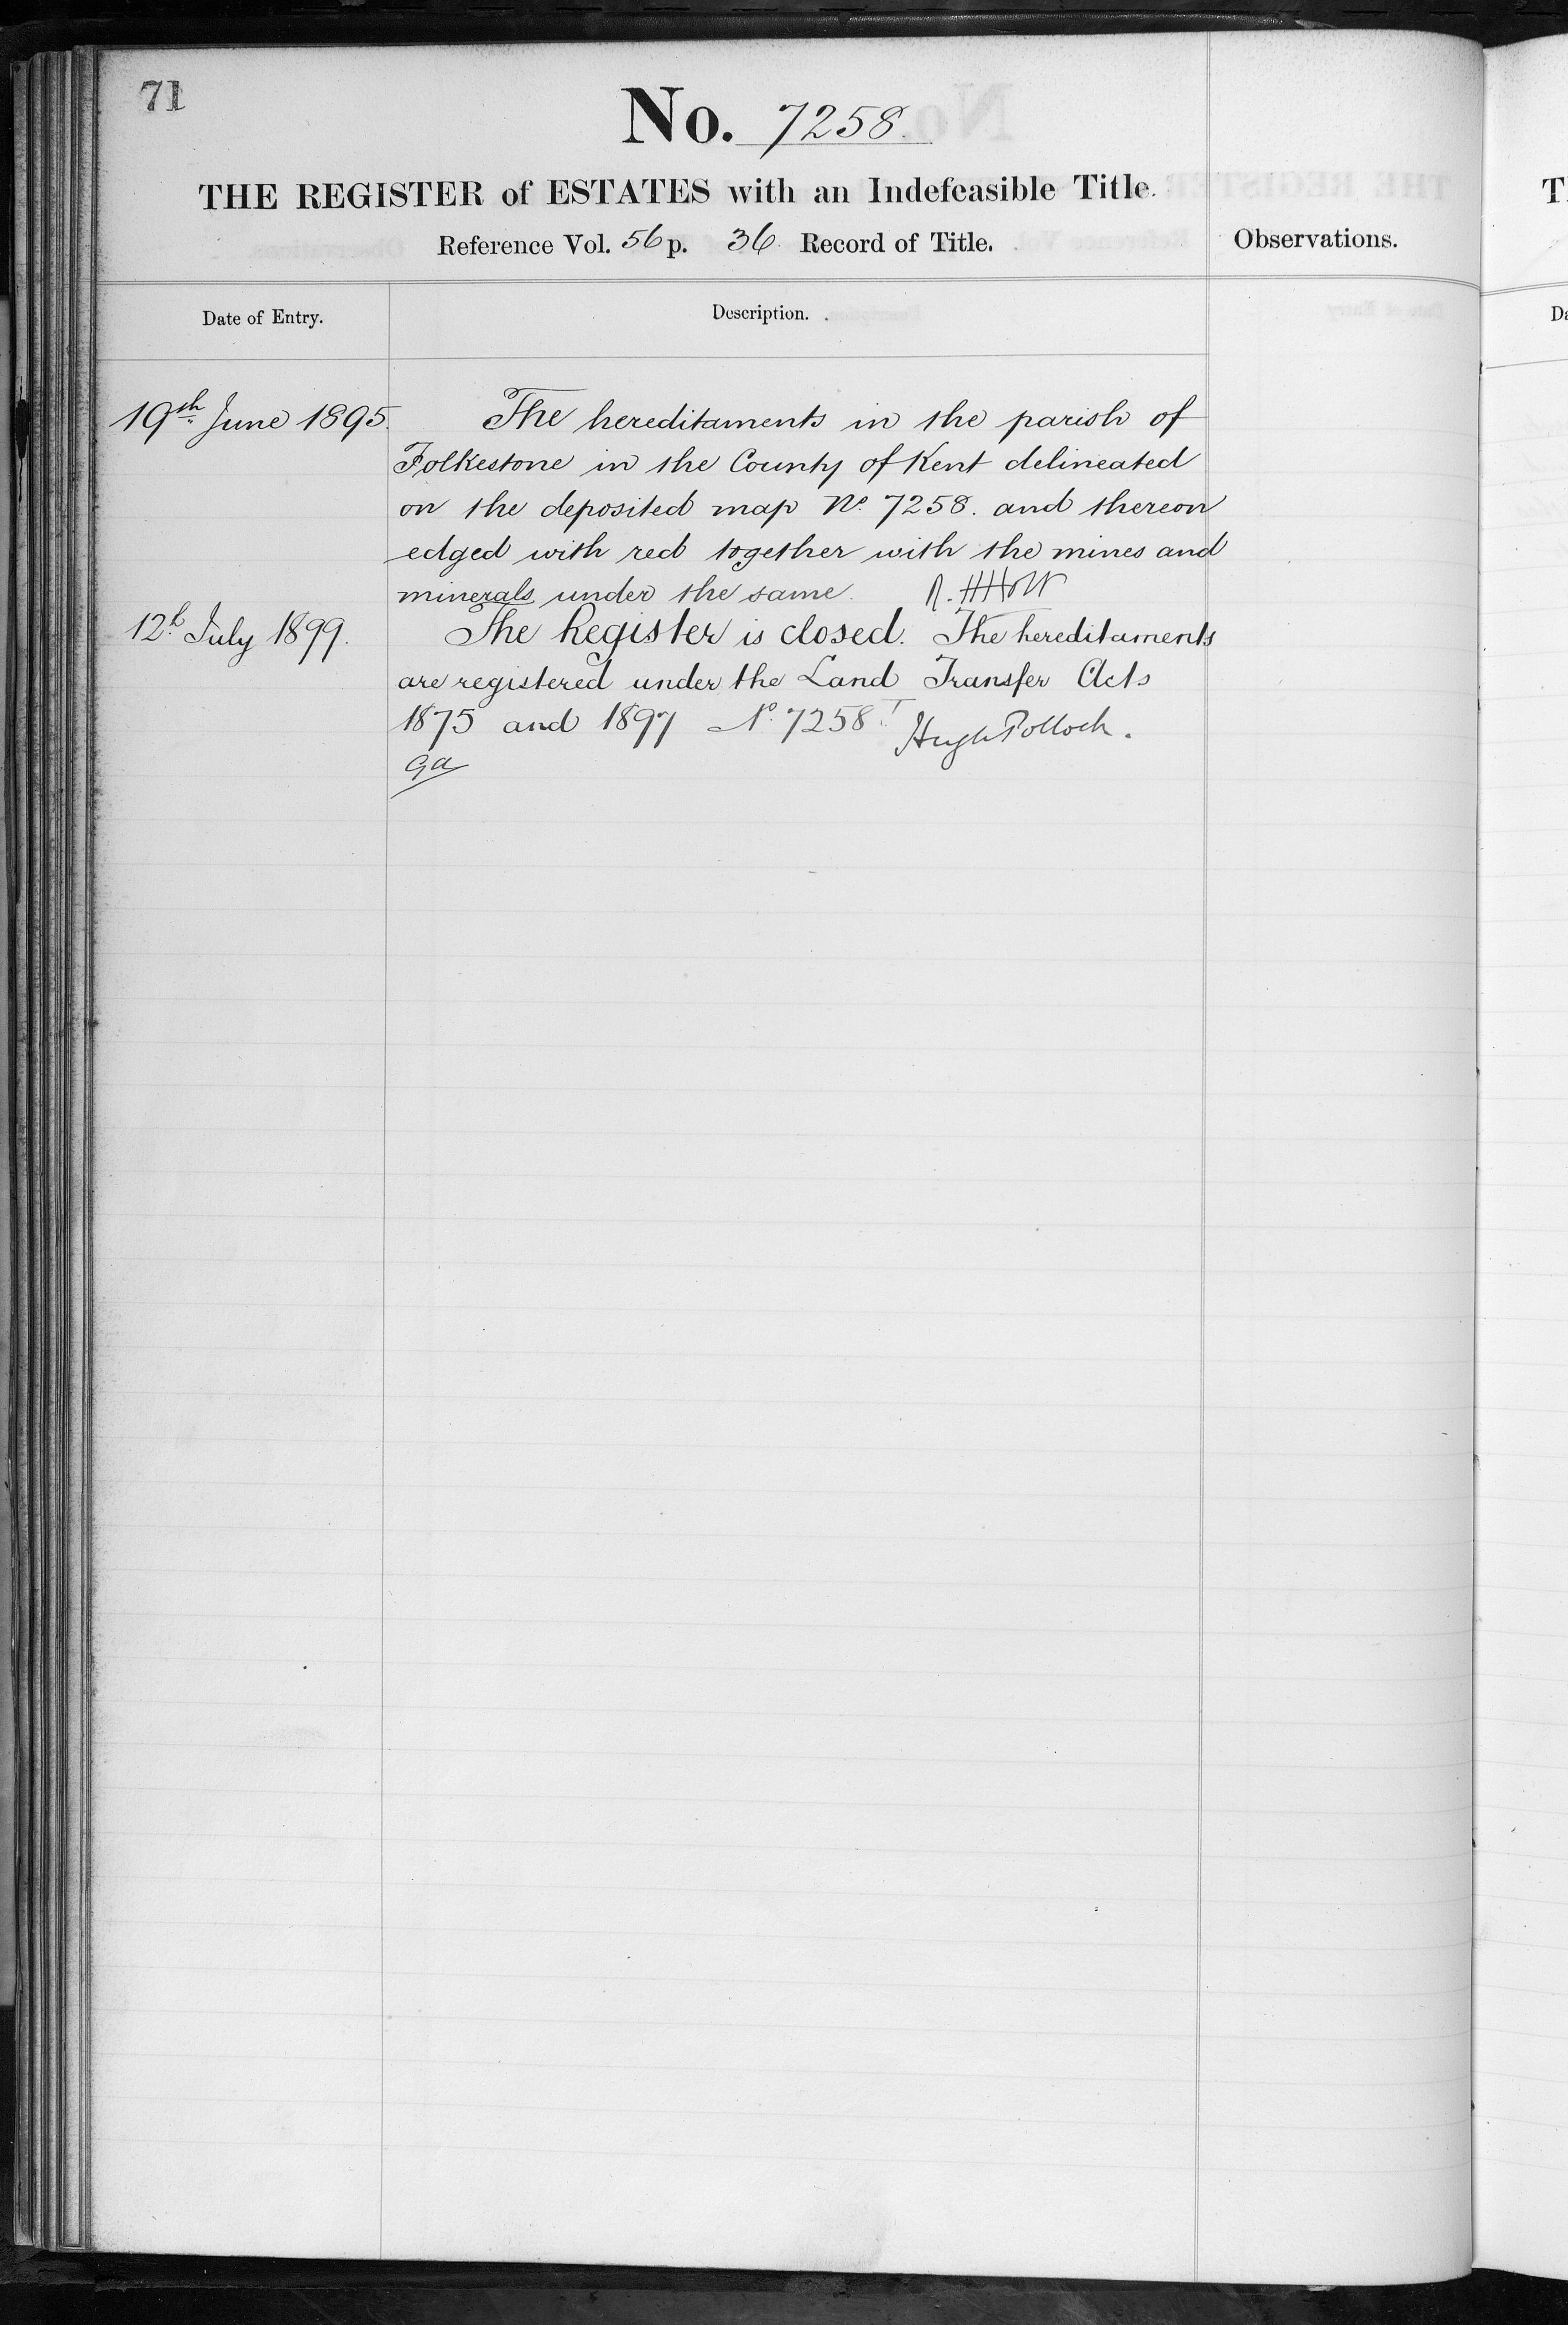 71
No. 7258.
THE REGISTER of ESTATES with an Indefeasible Title.
Reference Vol. 56 p. 36 Record of Title.
Observations.
Date of Entry.
Description.
19th June 1895.
The hereditaments in the parish of
Folkestone in the County of Kent delineated
on the deposited map No. 7258. and thereon
edged with red together with the mines and
minerals under the same. R. H Holt
12th July 1899.
The Register is closed. The hereditaments
are registered under the Land Transfer Acts
1875 and 1897 No. 7258 T Hugh Pollock.
Ga